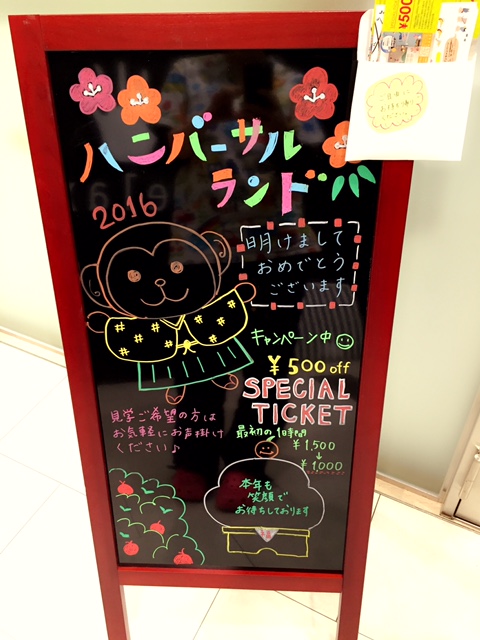 ハンバーサル
ランド
2016
明けまして
おめでとう
ございます
キャンペーン中
¥500off
SPECIAL
TICKET
見学ご希望の方は
お気軽にお声掛け
ください♪
最初の1時間
¥1,500
↓
¥1,000
本年も
笑顔で
お待ちしております
¥500
ご自由に
お持ち帰り
ください